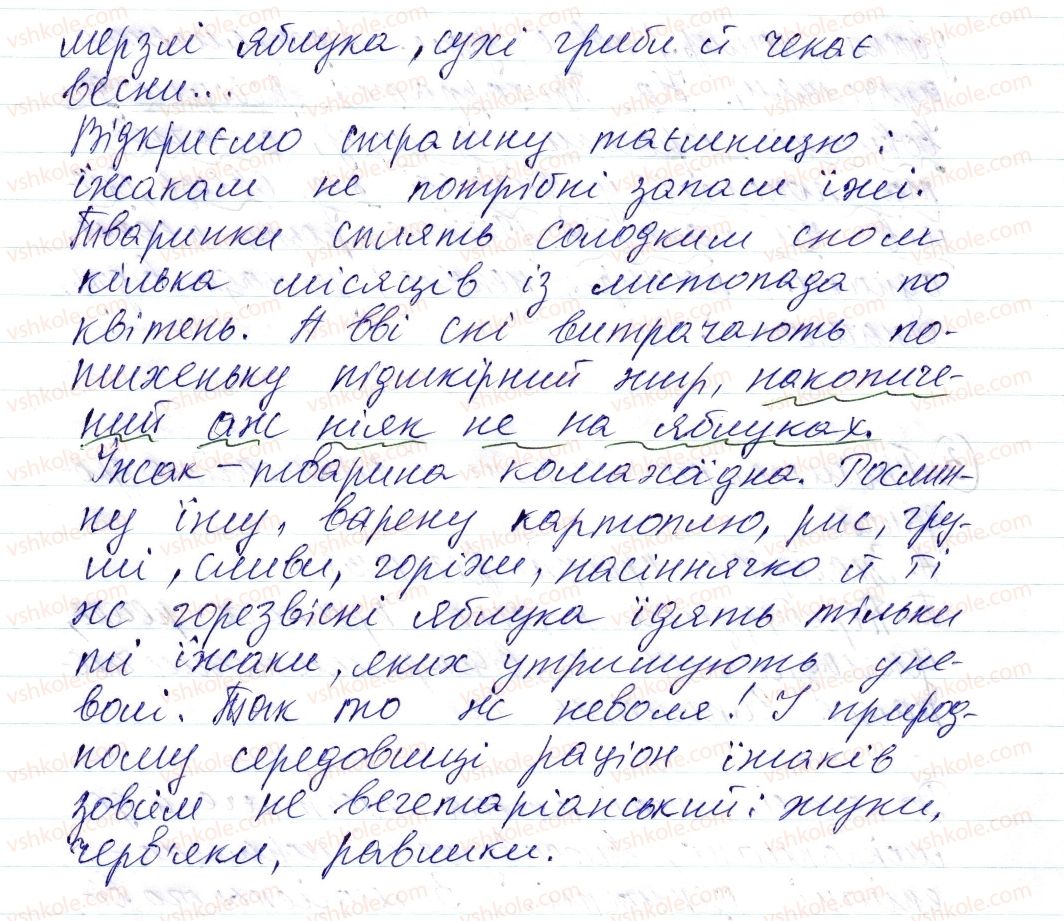 мерзлі яблука, сухі гриби й чекає
весни...
Відкриємо страшну таємницю:
їжакам не потрібні запаси їжі.
Тваринки сплять солодким сном
кілька місяців із листопада по
квітень. А вві сні витрачають по-
тихеньку підшкірний жир, накопиче-
ний аж ніяк не на яблуках.
Їжак – тварина комахоїдна. Рослин-
ну їжу, варену картоплю, рис, гру-
ші, сливи, горіхи, насіннячко й ті
ж горезвісні яблука їдять тільки
ті їжаки, яких утримують у не-
волі. Так то ж неволя! У природ-
ному середовищі раціон їжаків
зовсім не вегетаріанський: жуки,
черв'яки, равлики.